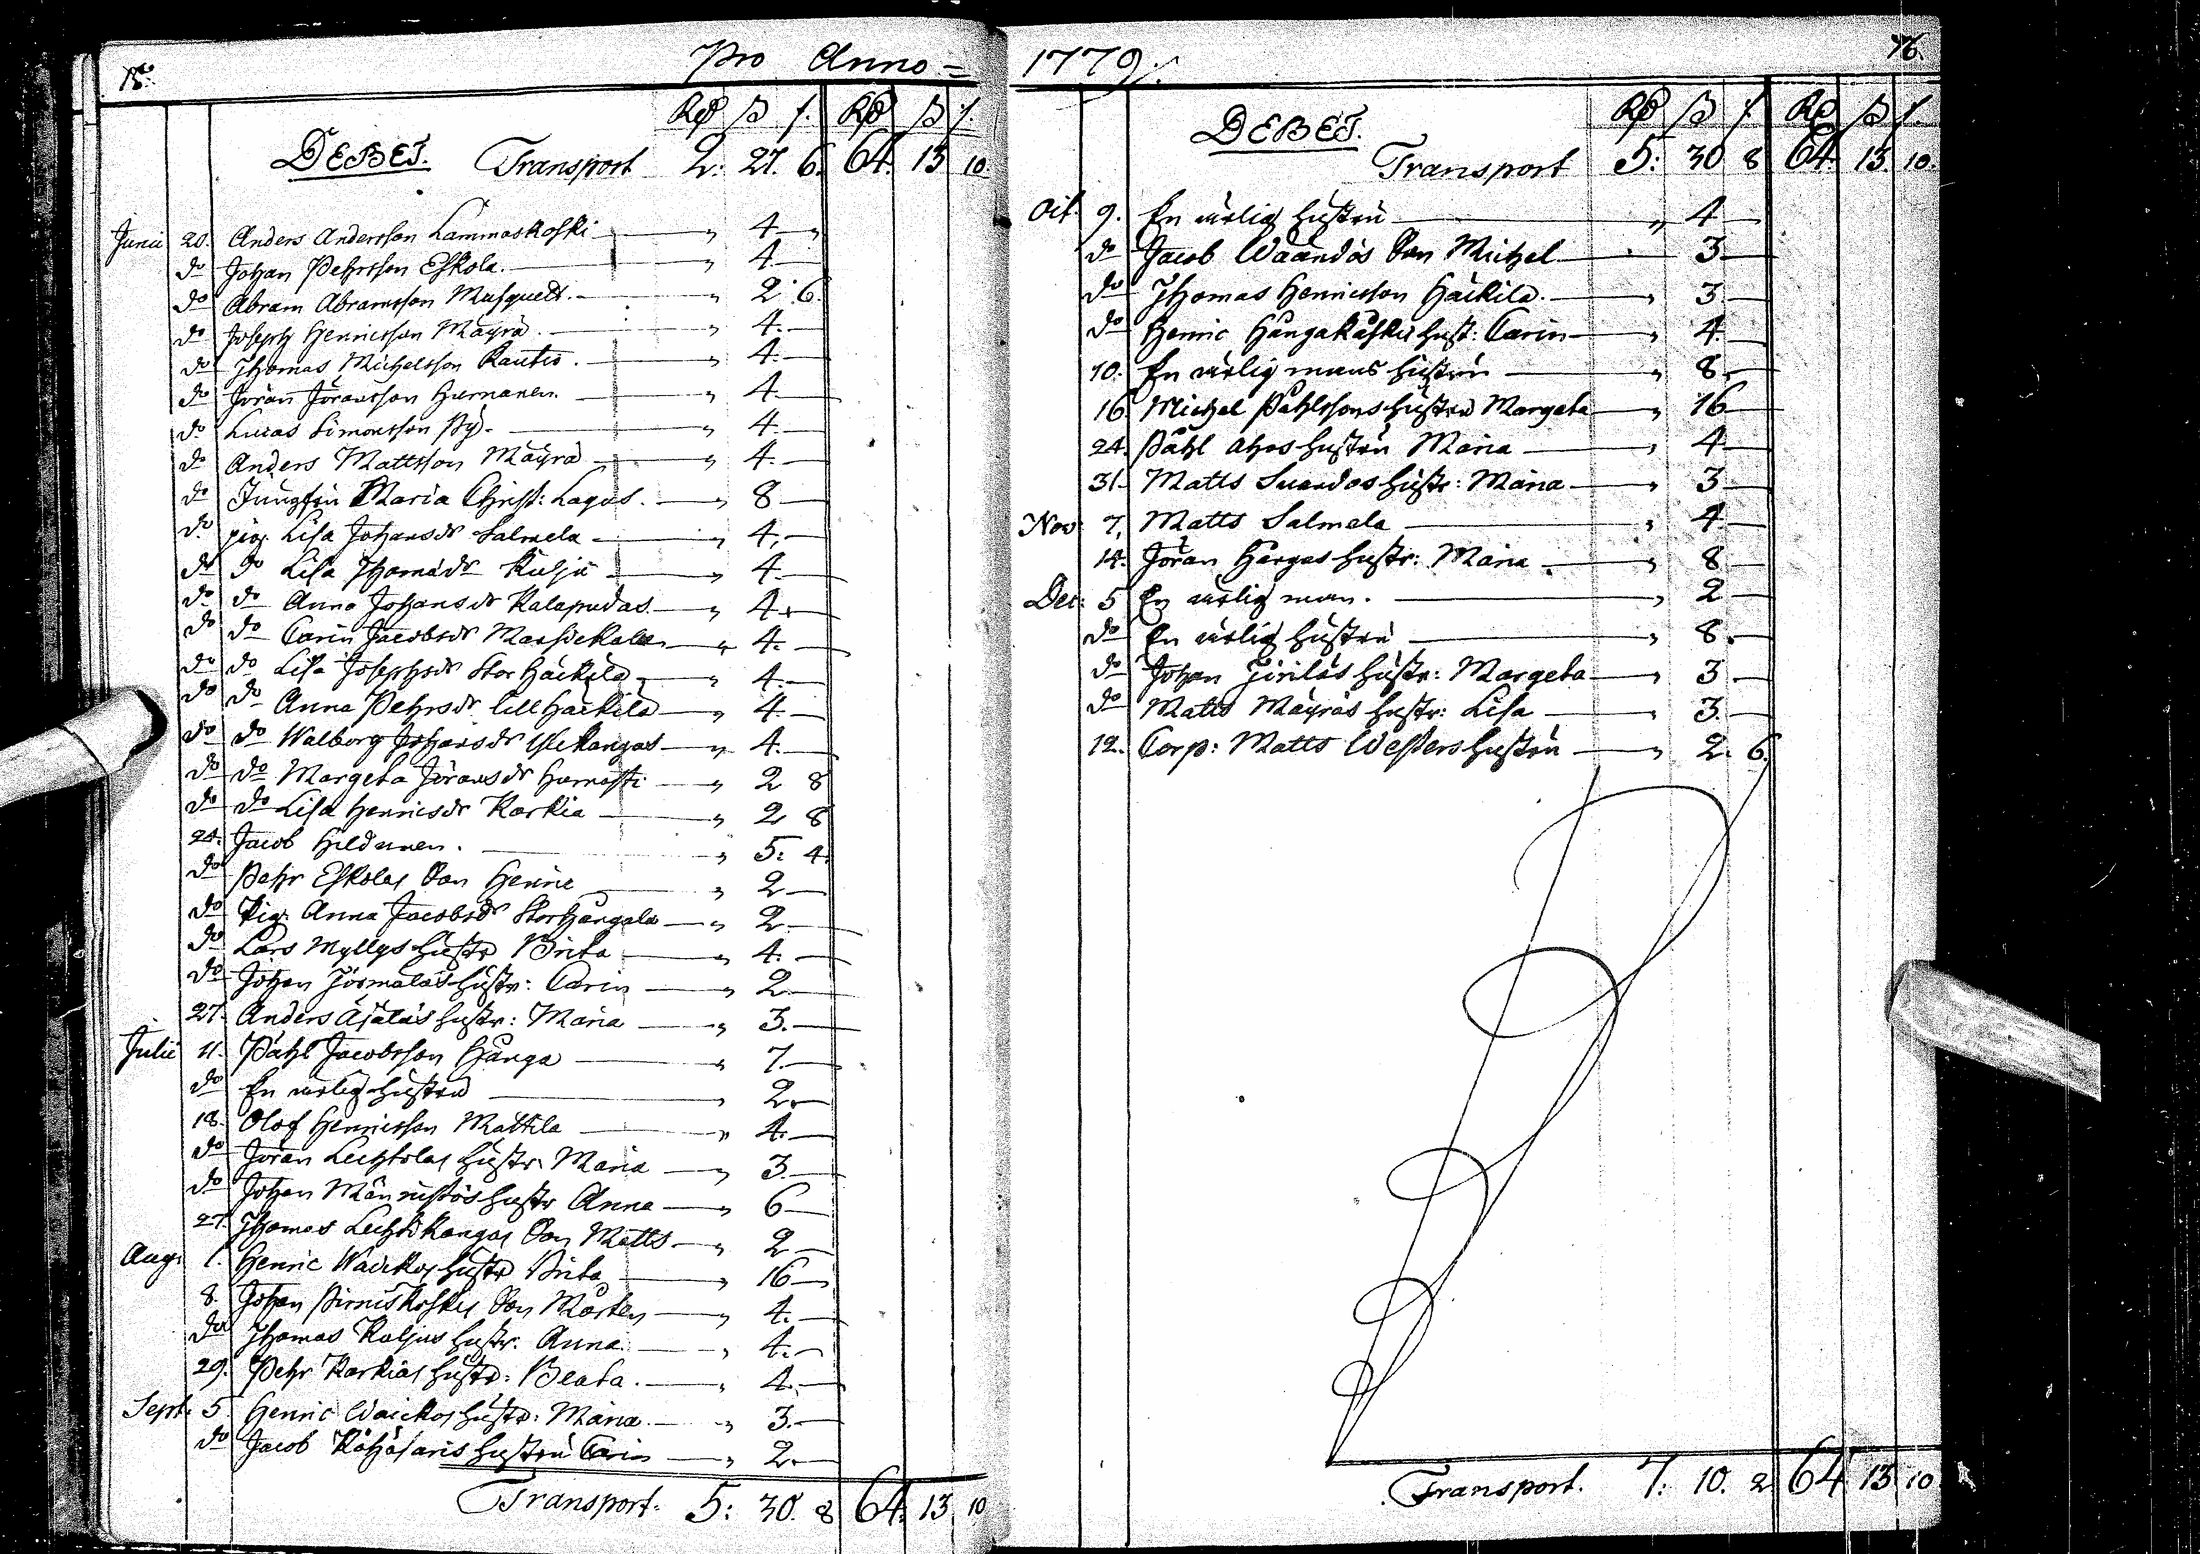 15.
Pro Anno =
Rd ß /. Rd ß /.
DEBET. Transport 2: 27. 6. 64. 13 10.
Junii 20. Anders Andersson Lammaskoski — " 4. —
do Johan Pehrsson Eskola. — " 4 —
do Abram Abramsson Musquett. — " 2 6.
do Joseph Henricsson Mäyrä. — " 4. —
do Thomas Michelsson Rautio. — " 4. —
do Jöran Jöransson Hurnanen. — " 4. —
do Lucas Simonsson Py. — " 4. —
do Anders Mattsson Mäyrä — " 4. —
do Jungfru Maria Christ: Lagus. — " 8 —
do pig. Lisa Johansdr Salmela — " 4. —
do do Lisa Thomädr Kulju — " 4. —
do do Anna Johansdr Kalapudas — " 4. —
do do Carin Jacobsdr — " 4. —
do do Lisa Josephsdr Stor Häikilä — " 4. —
do do Anna Pehrsdr lill Häikilä — " 4 —
do do Walborg Johansdr Ylikangas — " 4. —
do do Margeta Jöransdr — " 2 8
do do Lisa Henricsdr Karkia — " 2 8
24. Jacob Hildunen. — " 5: 4.
do Pehr Eskolas Son Henric — " 2 —
do Pig. Anna Jacobsdr Storhångala — " 2 —
do Lars Myllys Hustr Brita — " 4. —
do Johan Hustr: Carin — " 2 —
27. Anders Äjäläs Hustr: Maria — " 3. —
Julii 11. Påhl Jacobsson Hånga — " 7. —
do En ärlig Hustru — " 2. —
18. Olof Henricsson Mattila — " 4. —
do Jöran Lechtolas Hustr: Maria — " 3. —
do Johan Männistös Hustr Anna — " 6 —
27. Thomas Lechtikangas Son Matts — " 2 —
Aug: 1. Henric Waickos Hustr Brita — " 16 —
8. Johan Pirniskoskis Son Mårten — " 4. —
do Thomas Kuljus Hustr: Anna — " 4. —
29. Pehr Karkias Hustr: Beata. — " 4. —
Sept: 5. Henric Waickos Hustr: Maria. — " 3. —
do Jacob Hustru Carin — " 2. —
Transport. 5: 30. 8 64. 13 10
1779.
16.
Rd ß /. Rd ß /.
DEBET.
Transport 5: 30 8 64. 13. 10.
Oct. 9. En ärlig Hustru — " 4 —
do Jacob Son Michel — " 3 —
do Thomas Henricsson Häikilä. — " 3 —
do Henric Hångakoskis Hust: Carin — " 4. —
10. En ärlig mans Hustru — " 8. —
16. Michel Påhlssons Hustru Margeta — " 16 —
24. Påhl Ahos Hustru Maria — " 4 —
31. Matts Hustr: Maria — " 3 —
Nov: 7. Matts Salmela — " 4. —
14. Jöran Hångas Hustr: Maria — " 8 —
Dec: 5 En ärlig man. — " 2 —
do En ärlig Hustru — " 8. —
do Johan Hustr: Margeta — " 3. —
do Matts Mäyräs Hustr: Lisa — " 3. —
12. Corp: Matts Westers Hustru — " 2. 6.
Transport. 7: 10. 2 64 13 10